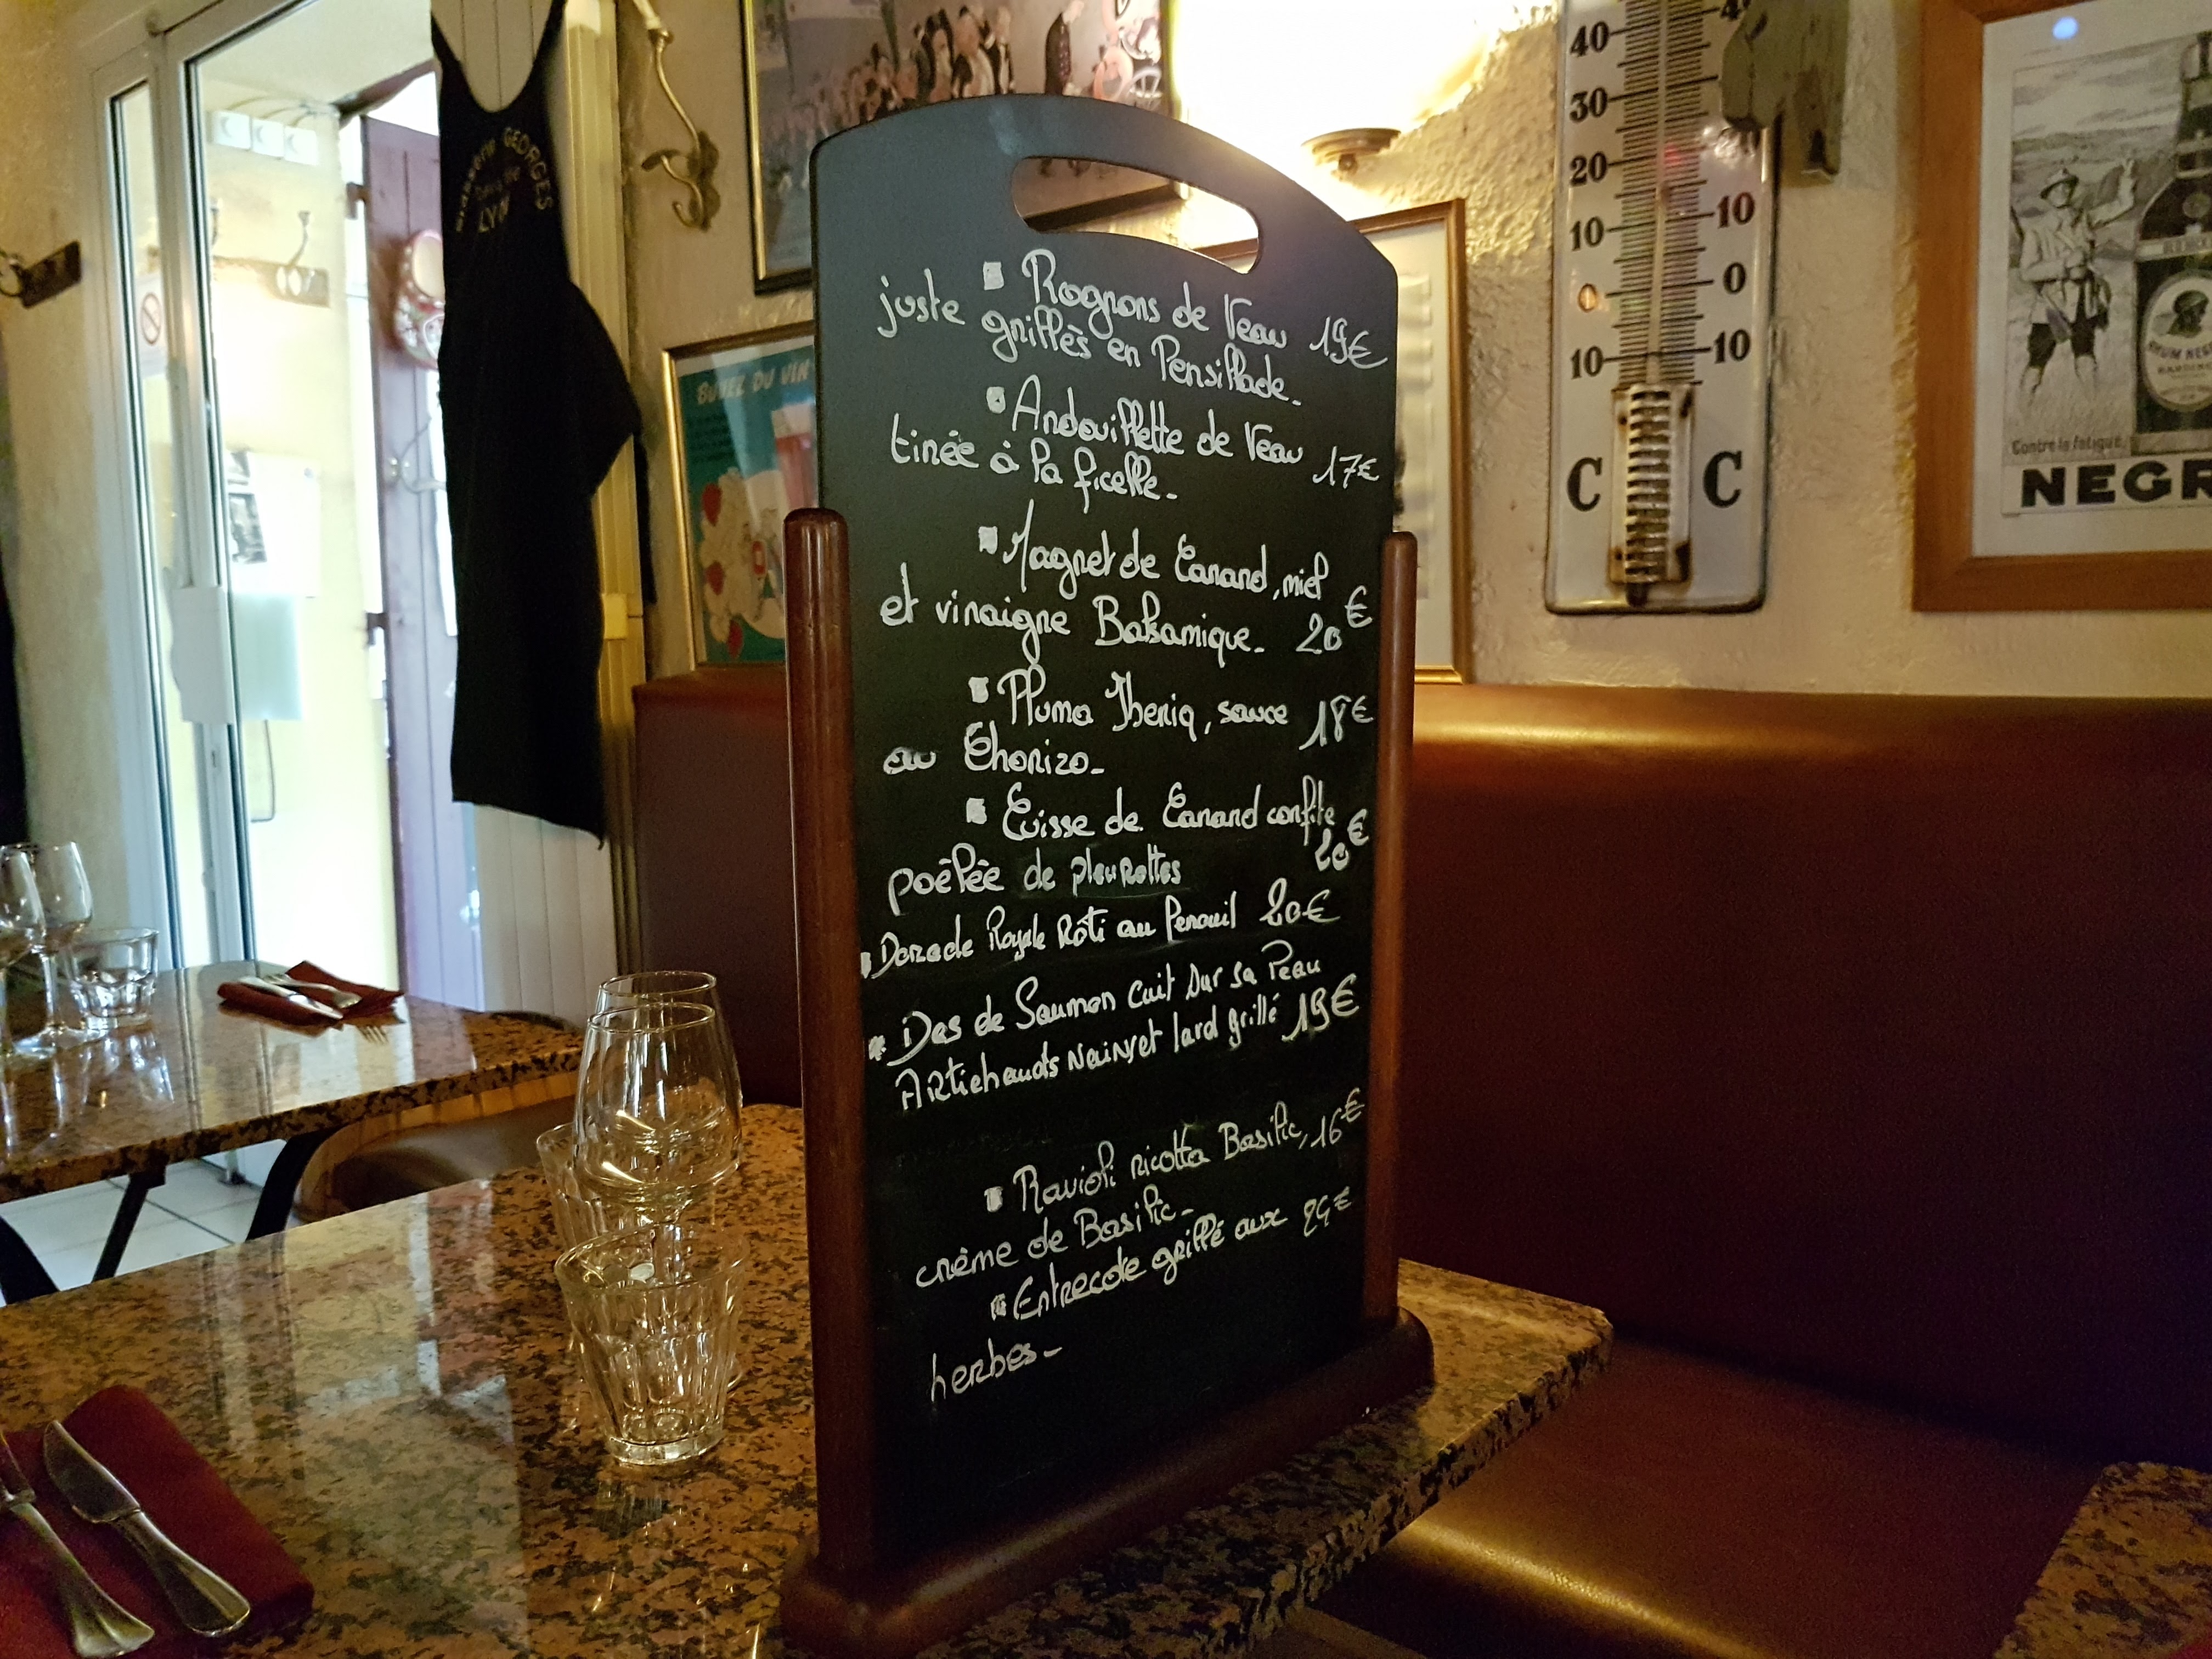 Brasserie GEORGES
LYON
BUVEZ DU VIN
40
30
20
10
0
10
10
0
10
C C
Contre la fatigue
RHUM NEGR
NEGR
Rognons de Veau 19€
juste grillés en Persillade.
Andouillette de Veau 17€
tirée à la ficelle.
Magret de Canard, miel
et vinaigre Balsamique. 20€
Pluma Iberiq, sauce 18€
au Chorizo.
Cuisse de Canard confite
20€
poêlée de pleurottes
Dorade Royale Rôti au Fenouil 20€
Dos de Saumon cuit sur sa Peau
Artichauts Nains et lard grillé 19€
Ravioli ricotta Basilic, 16€
crème de Basilic.
Entrecote grillé aux 24€
herbes.